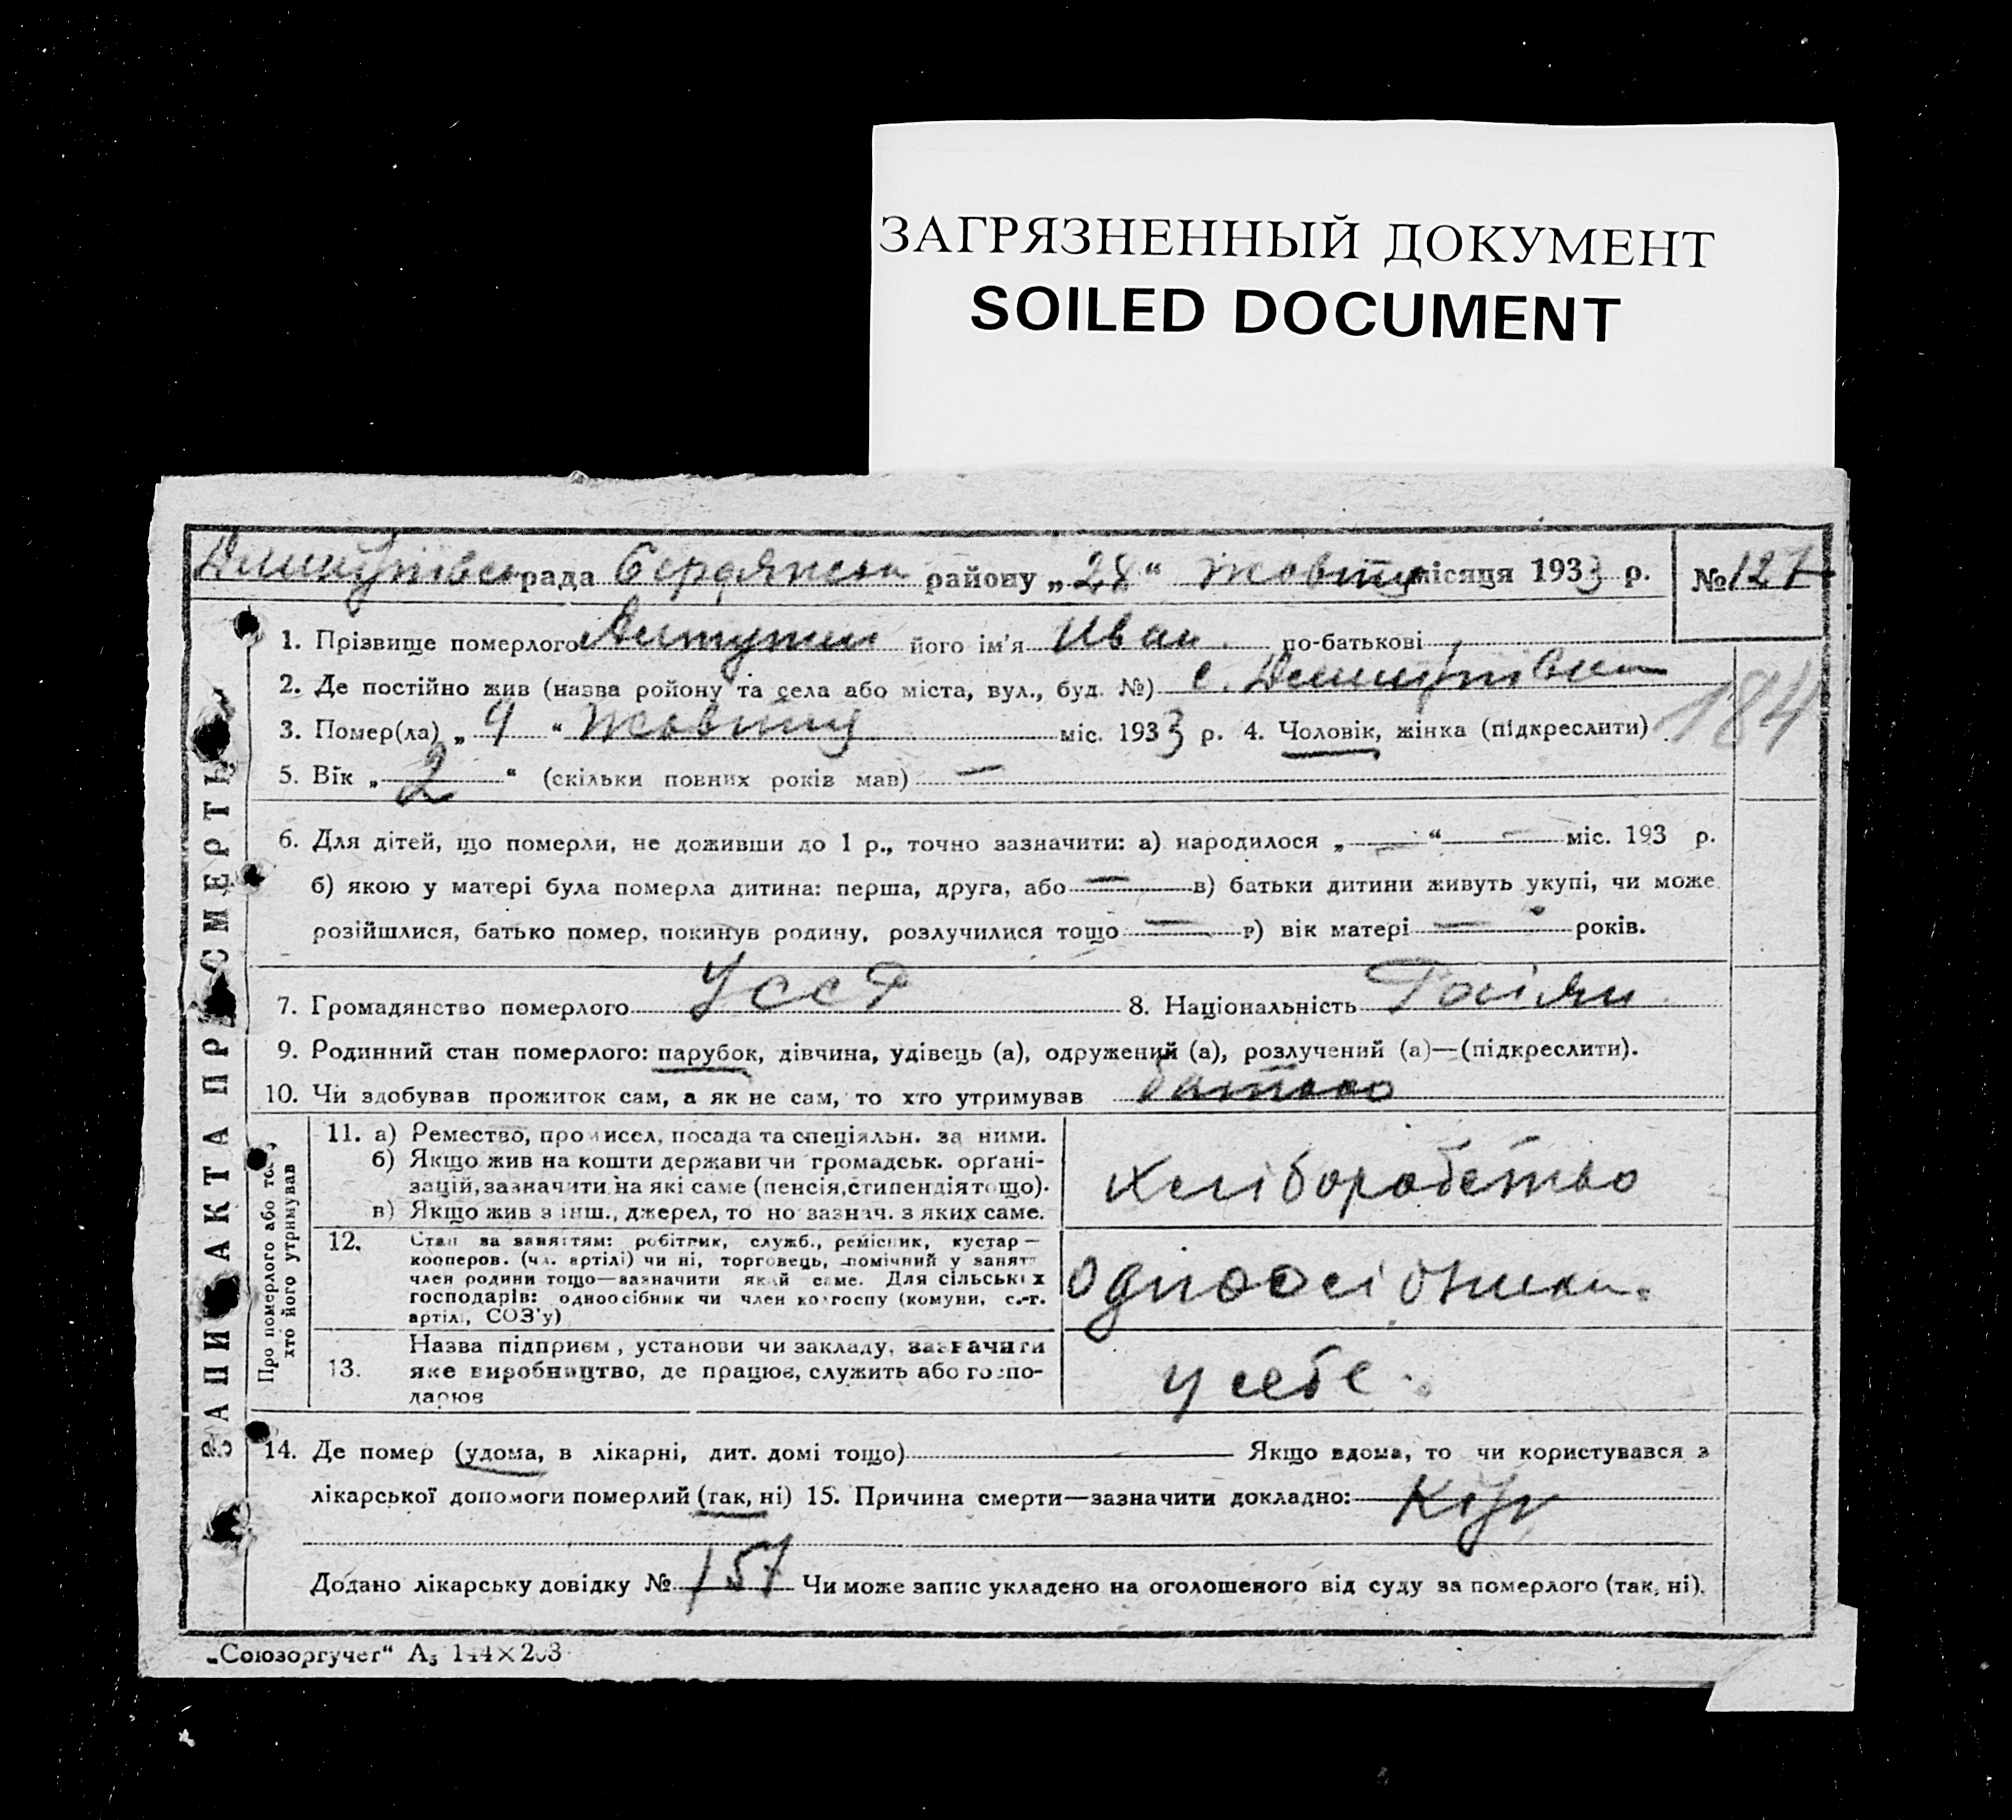 ЗАГРЯЗНЕННЫЙ ДОКУМЕНТ
SOILED DOCUMENT
рада району „28“ Жовтня місяця 1933 р. № 127
1. Прізвище померлого його ім'я Иван по-батькові
2. Де постійно жив (назва ройону та села або міста, вул., буд. №) с.
3. Помер(ла) „9“ міс. 1933 р. 4. Чоловік, жінка (підкреслити)
184
5. Вік „2“ (скільки повних років мав) —
6. Для дітей, що померли, не доживши до 1 р., точно зазначити: а) народилося „—“ — міс. 193 р.
б) якою у матері була померла дитина: перша, друга, або — в) батьки дитини живуть укупі, чи може
розійшлися, батько помер, покинув родину, розлучилися тощо — г) вік матері — років.
7. Громадянство померлого УССР 8. Національність
9. Родинний стан померлого: парубок, дівчина, удівець (а), одружений (а), розлучений (а)—(підкреслити).
10. Чи здобував прожиток сам, а як не сам, то хто утримував батько
ЗАПИС АКТА ПРО СМЕРТЬ
Про померлого або того,
хто його утримував
11. а) Ремество, промисел, посада та спеціяльн. за ними.
б) Якщо жив на кошти держави чи громадськ. орґані-
зацій, зазначити на які саме (пенсія, стипендія тощо).
в) Якщо жив з інш., джерел, то но зазнач. з яких саме.
хліборобство
12. Стан за заняттям: робітник, служб., ремісник, кустар—
кооперов. (чл. артілі) чи ні, торговець, помічний у занятт
член родини тощо—зазначити який саме. Для сільських
господарів: одноосібник чи член колгоспу (комуни, с.-г.
артілі, СОЗ'у)
13. Назва підприєм, установи чи закладу, зазначити
яке виробництво, де працює, служить або госпо-
дарює
у себе.
14. Де помер (удома, в лікарні, дит. домі тощо) Якщо вдома, то чи користувався з
лікарської допомоги померлий (так, ні) 15. Причина смерти—зазначити докладно:
Додано лікарську довідку № 157 Чи може запис укладено на оголошеного від суду за померлого (так, ні).
„Союзоргучет“ А₅ 144×203